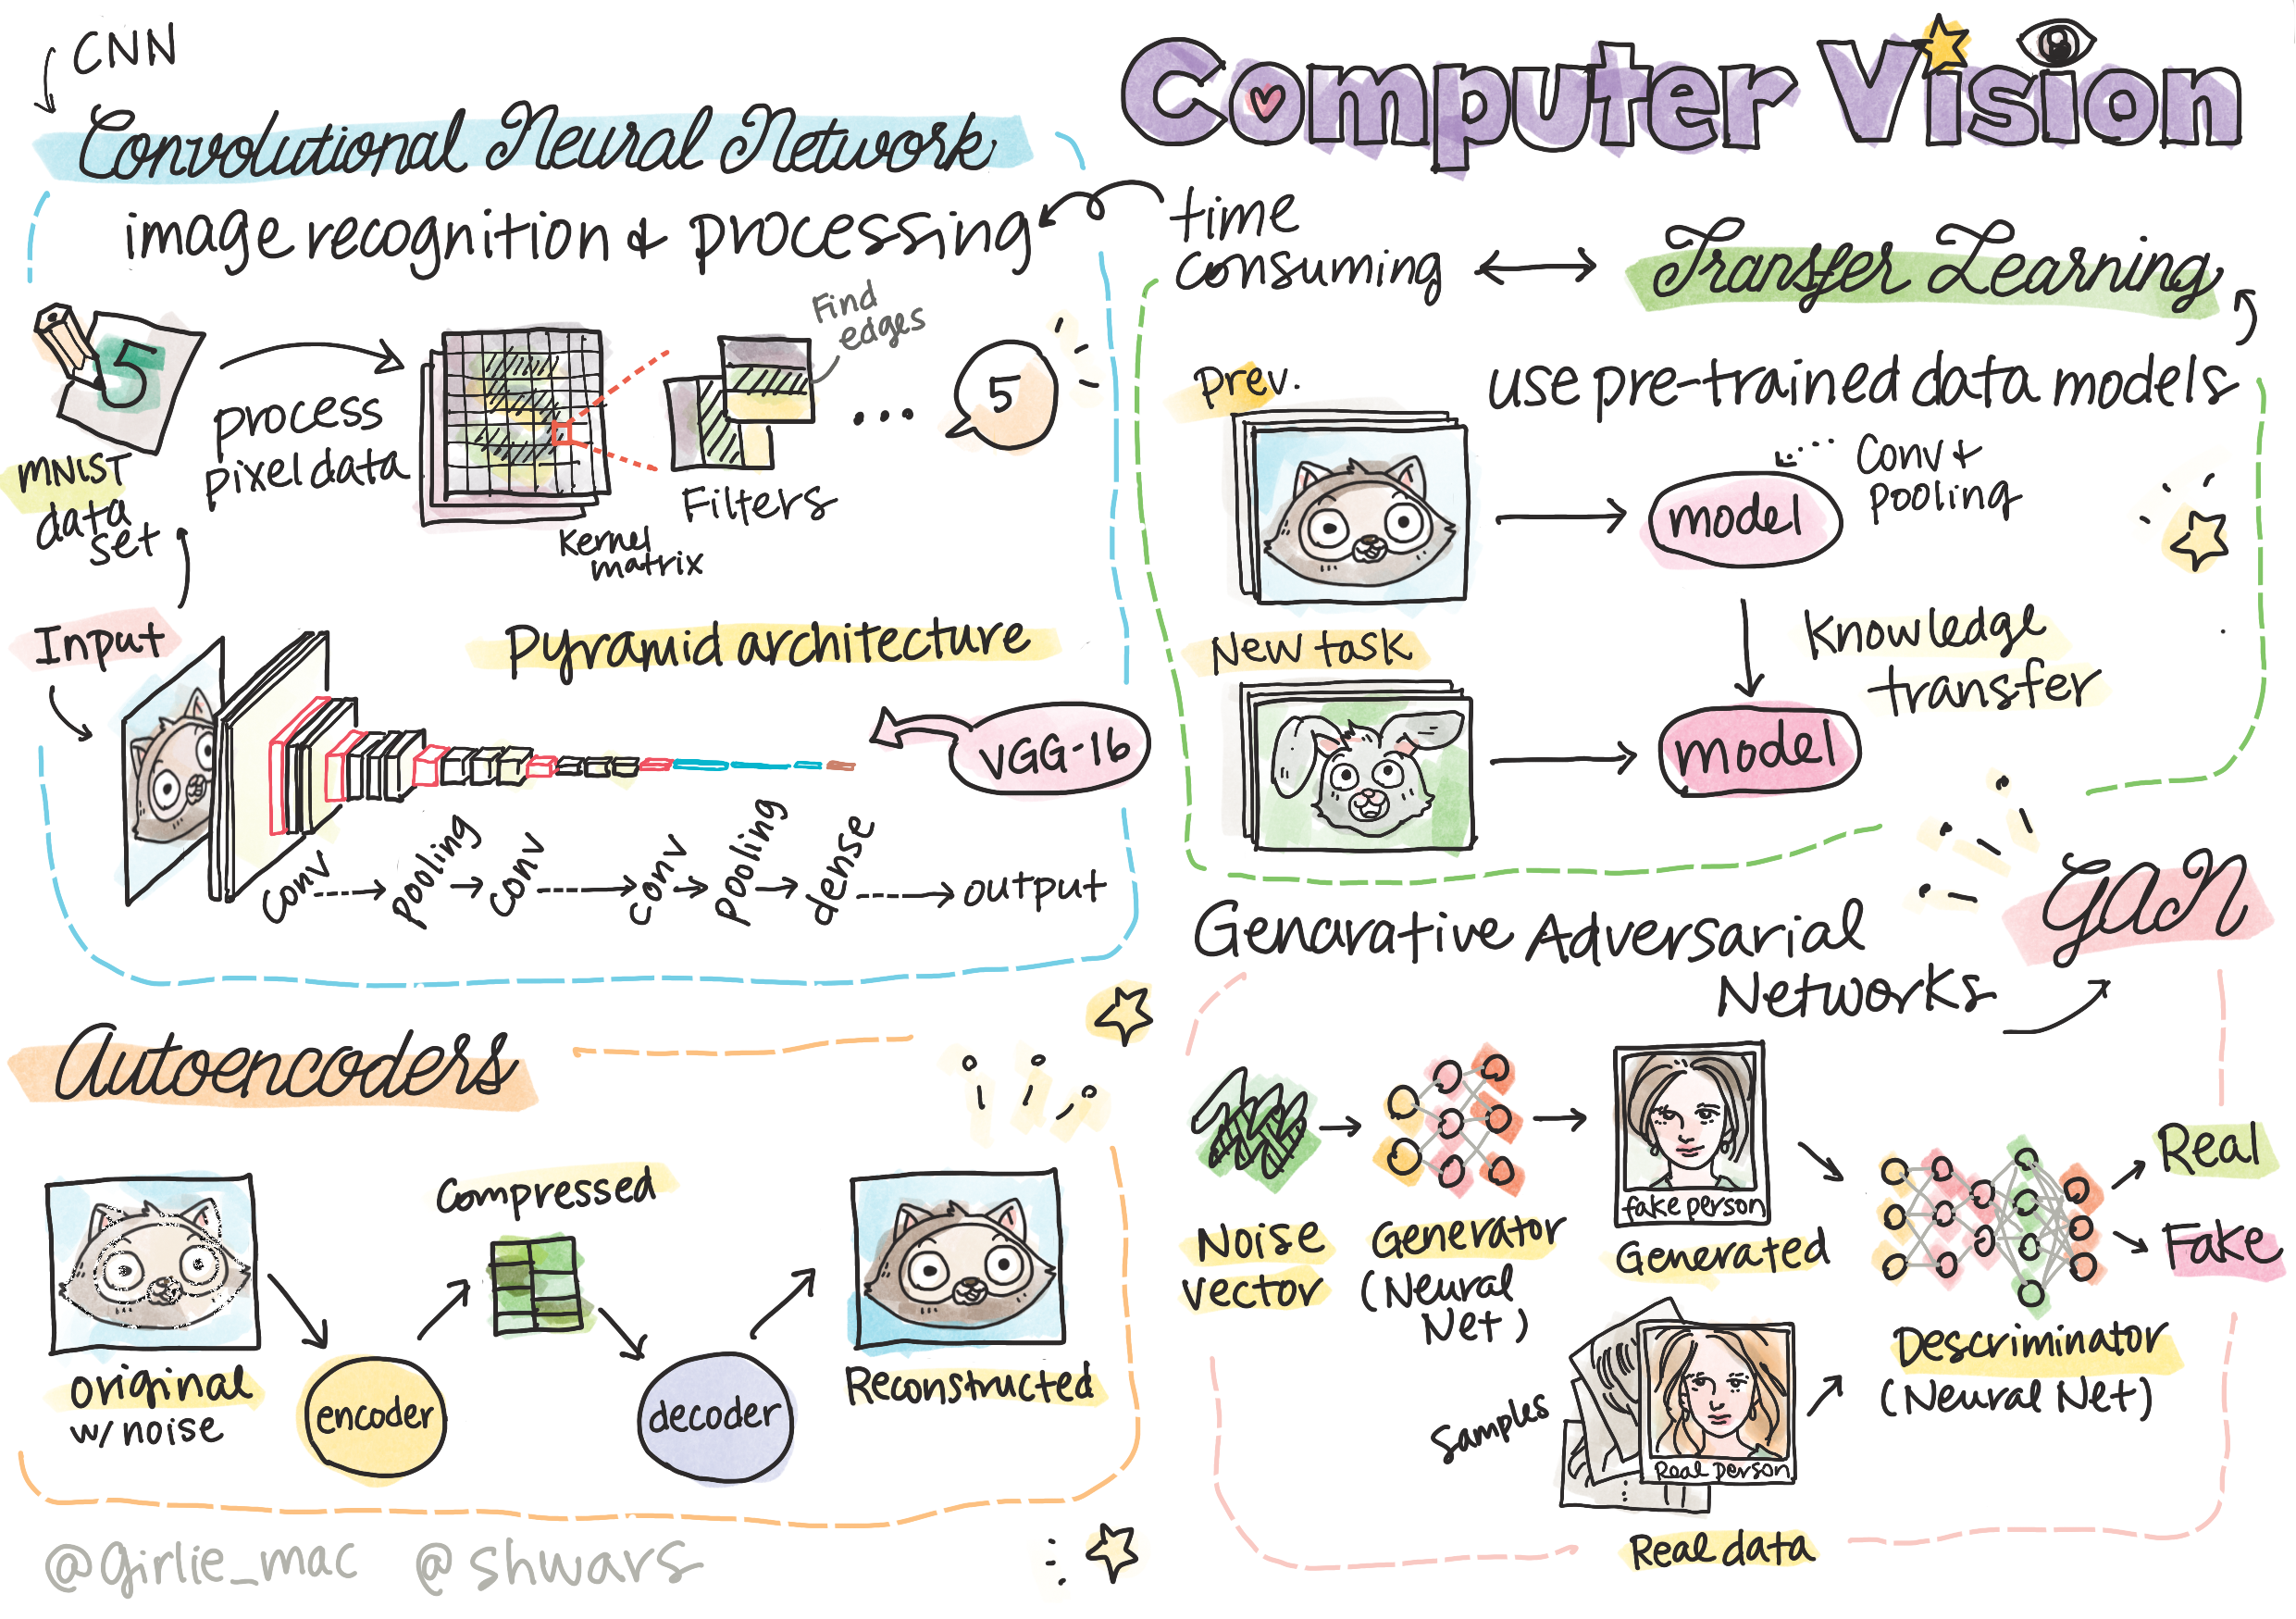 Computer Vision
CNN
Convolutional Neural Network
image recognition & processing
5
MNIST
data
set
process
pixel data
Kernel
matrix
Find
edges
Filters
5
Input
Pyramid architecture
VGG-16
conv
pooling
conv
conv
pooling
dense
output
time
consuming
Transfer Learning
use pre-trained data models
prev.
model
Conv &
pooling
New task
Knowledge
transfer
model
Autoencoders
original
w/ noise
encoder
Compressed
decoder
Reconstructed
GAN
Genarative Adversarial
Networks
Noise
vector
Generator
(Neural
Net)
fake person
Generated
Samples
Real person
Real data
Descriminator
(Neural Net)
Real
Fake
@girlie_mac @shwars